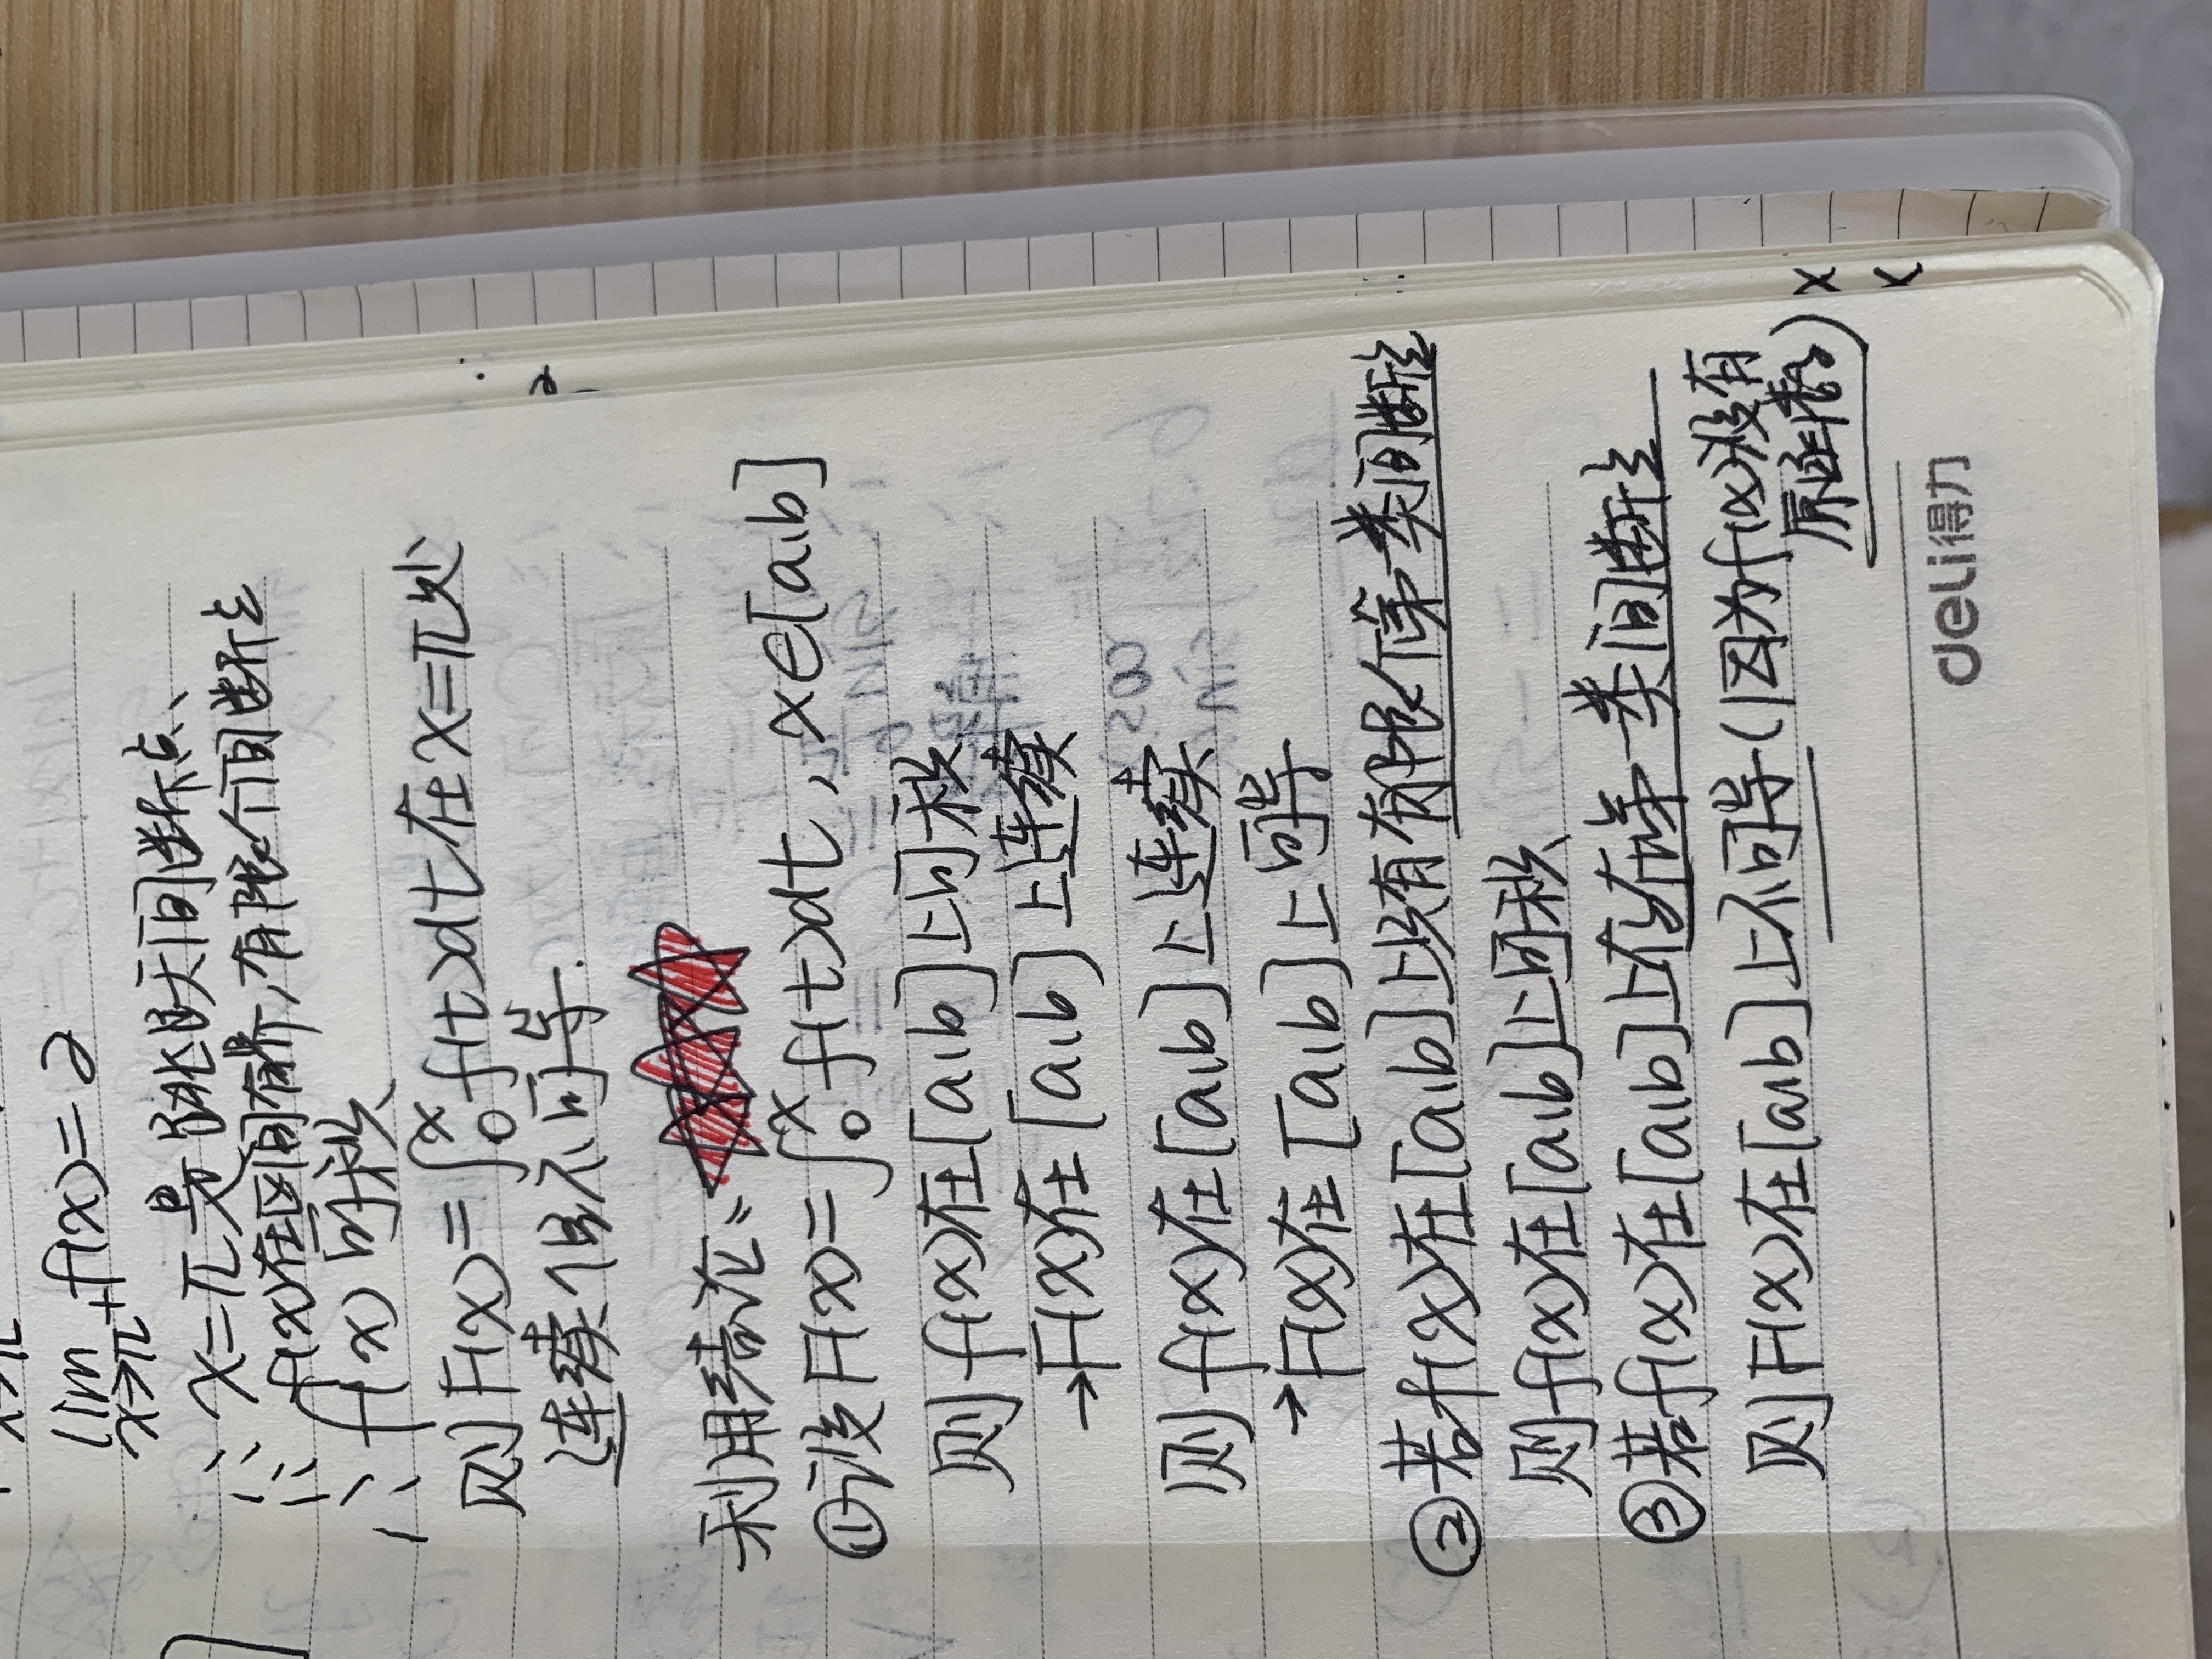 x→π
lim f(x)=2
x→π⁺
∴ x=π是跳跃间断点、
∵ f(x)在区间有界,有限个间断点
∴ f(x)可积
则F(x)=∫₀ˣf(t)dt在x=π处
连续但不可导.
利用结论:
①设F(x)=∫₀ˣf(t)dt, x∈[a,b]
则f(x)在[a,b]上可积
→F(x)在[a,b]上连续
则f(x)在[a,b]上连续
→F(x)在[a,b]上可导
②若f(x)在[a,b]上只有有限个第一类间断点
则f(x)在[a,b]上可积
③若f(x)在[a,b]上存在第一类间断点
则F(x)在[a,b]上不可导(因为f(x)没有
原函数)
deli得力